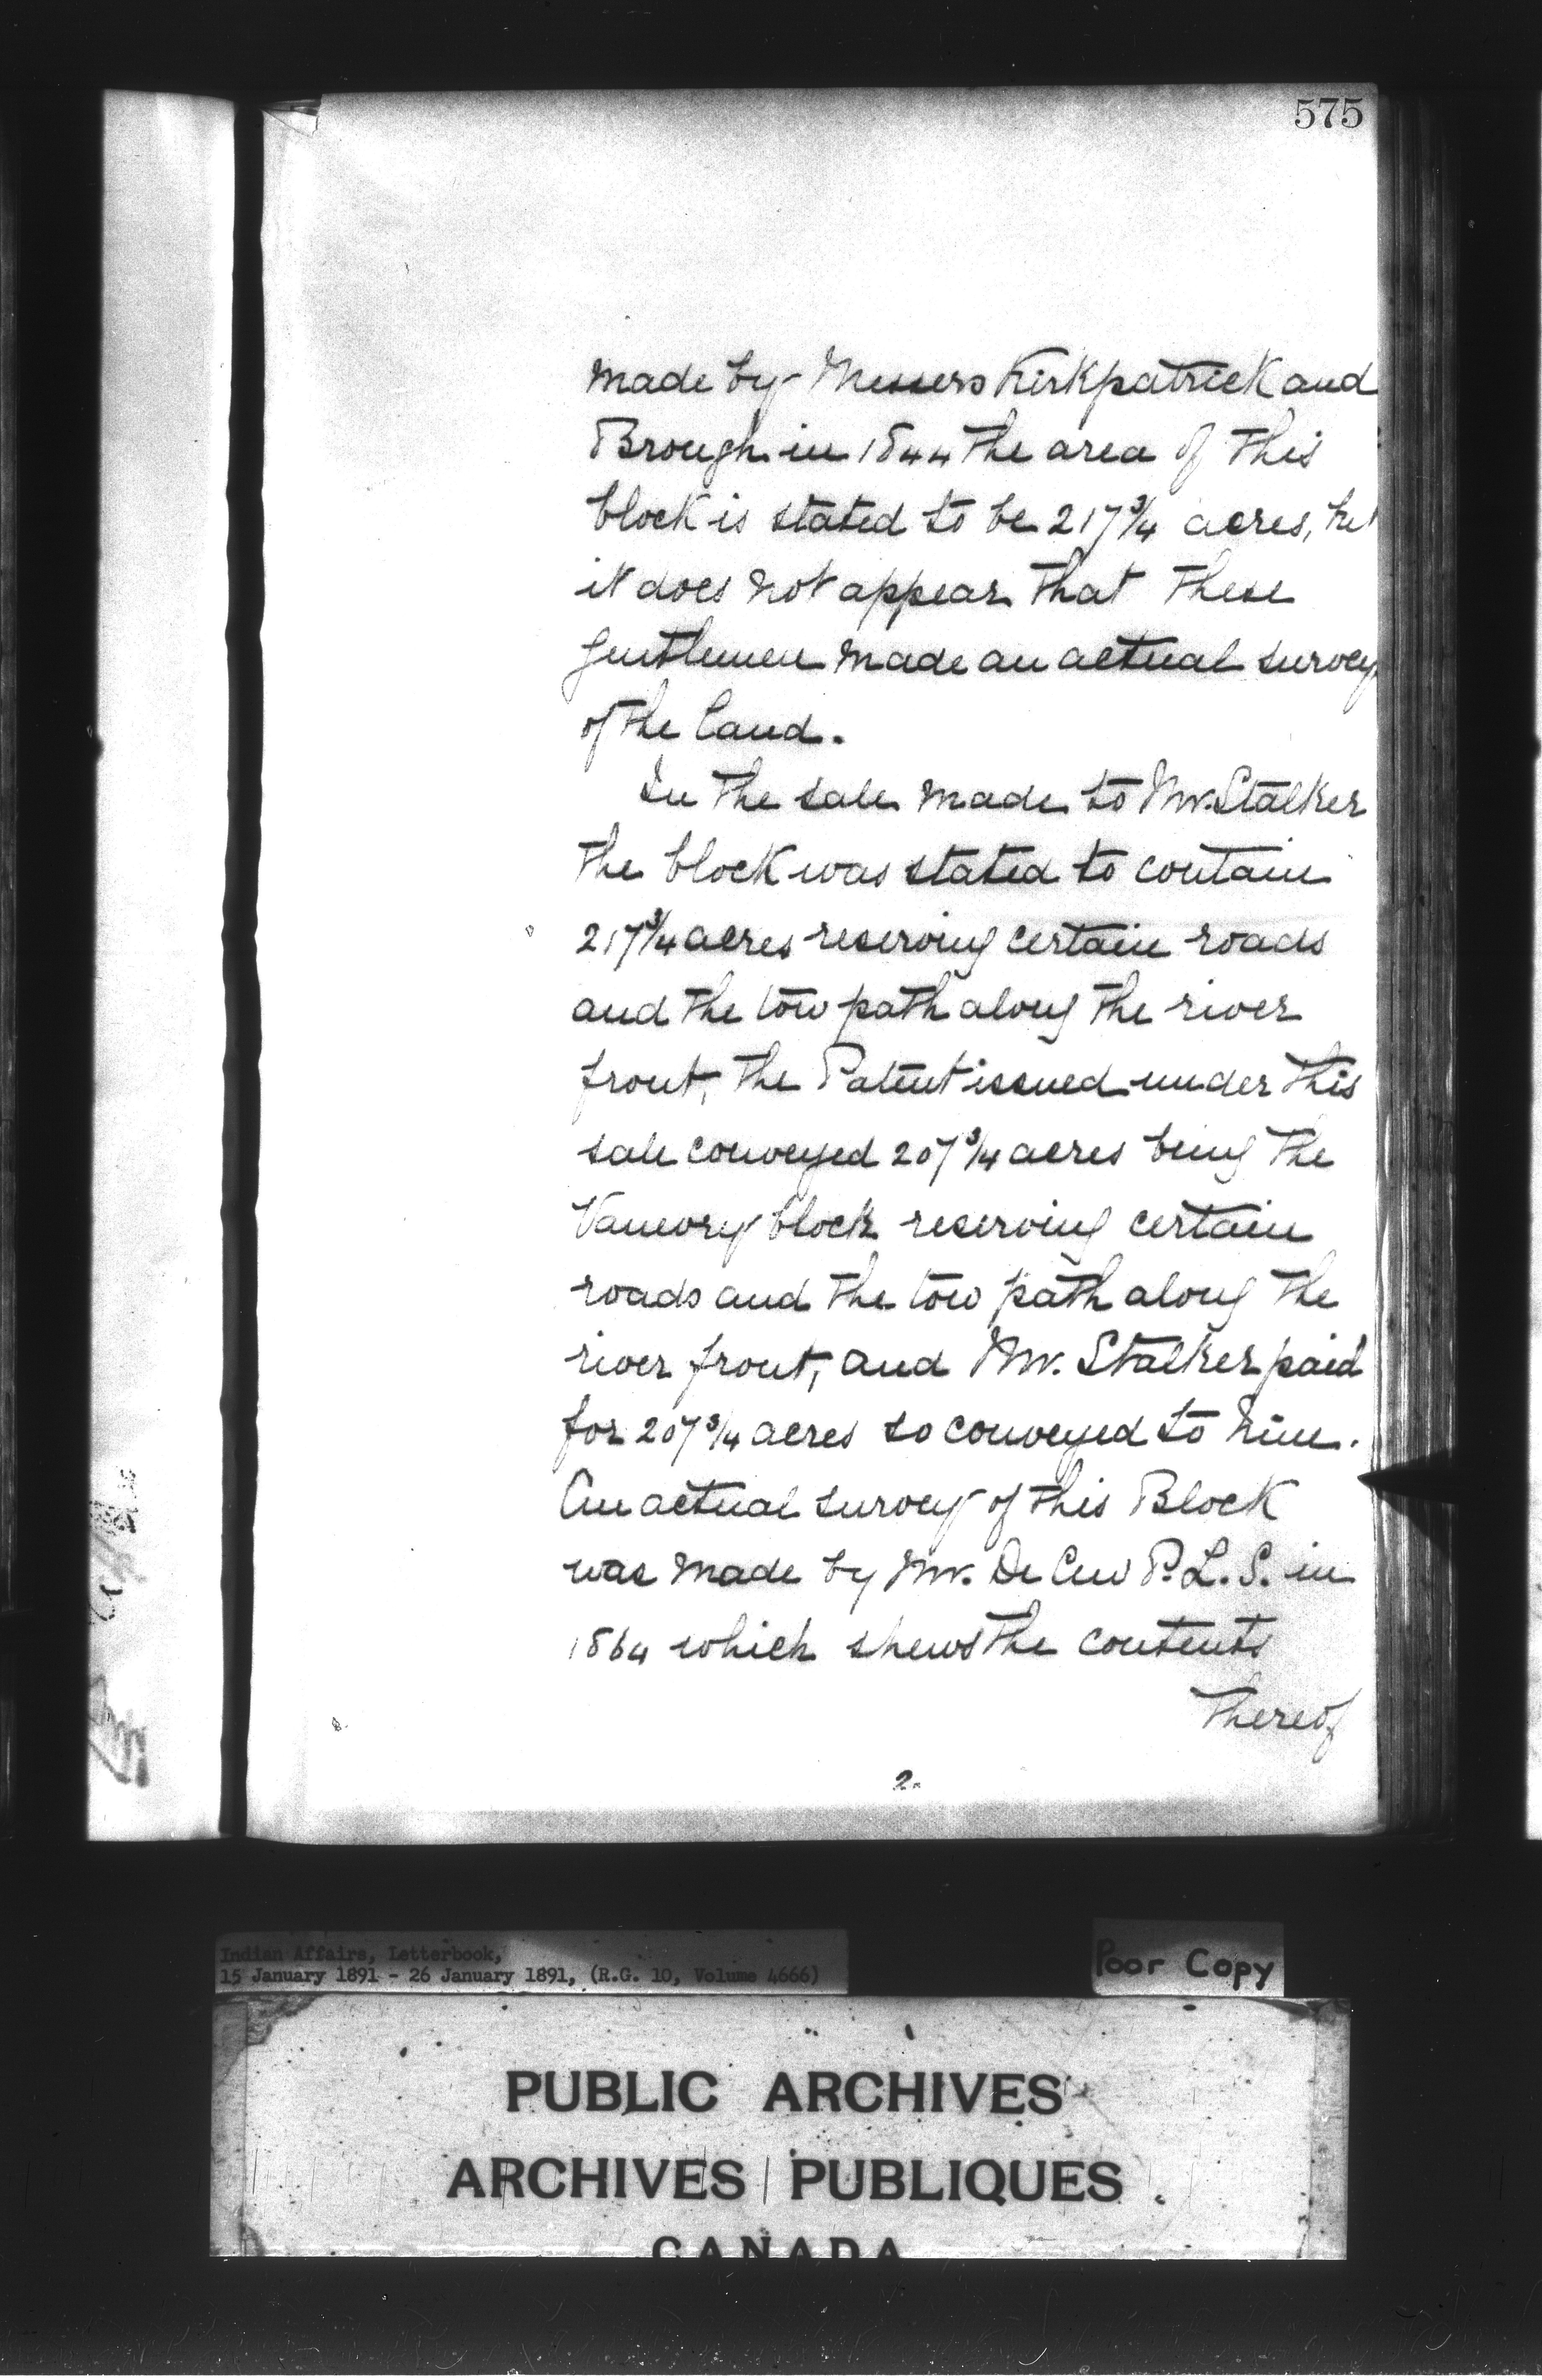 575
made by Messers Kirkpatrick and
Brough in 1844 the area of this
block is stated to be 217¾ acres,
it does not appear that these
gentlemen made an actual survey
of the land.
In the sale made to Mr. Stalker
the block was stated to contain
217¾ acres reserving certain roads
and the tow path along the river
front, the Patent issued under this
sale conveyed 207¾ acres being the
block reserving certain
roads and the tow path along the
river front, and Mr. Stalker paid
for 207¾ acres so conveyed to him.
An actual survey of this Block
was made by Mr. De Cew P.L.S. in
1864 which shews the contents
thereof
2.
Indian Affairs, Letterbook,
15 January 1891 - 26 January 1891, (R.G. 10, Volume 4666)
Poor Copy
PUBLIC ARCHIVES
ARCHIVES PUBLIQUES
CANADA